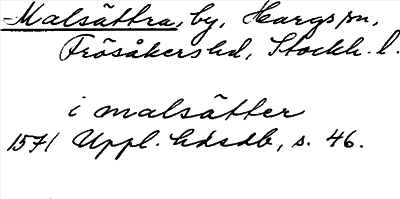 Malsättra, by, Hargs sn,
Frösåkers hd, Stockh. l.
i malsätter
1571 Uppl. hdsdb, s. 46.